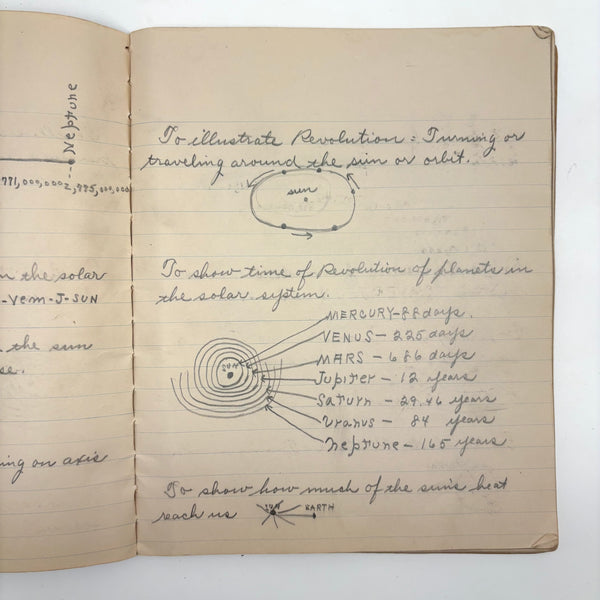 Neptune
771,000,000 2,775,000,000
n the solar
-Vem-J-SUN
the sun
se.
ing on axis
To illustrate Revolution: Turning or
traveling around the sun or orbit.
sun
To show time of Revolution of planets in
the solar system.
MERCURY-88 days.
VENUS-225 days
MARS-686 days
Jupiter-12 years
SUN
Saturn-29.46 years
Uranus-84 years
Neptune-165 years
To show how much of the suns heat
reach us SUN EARTH